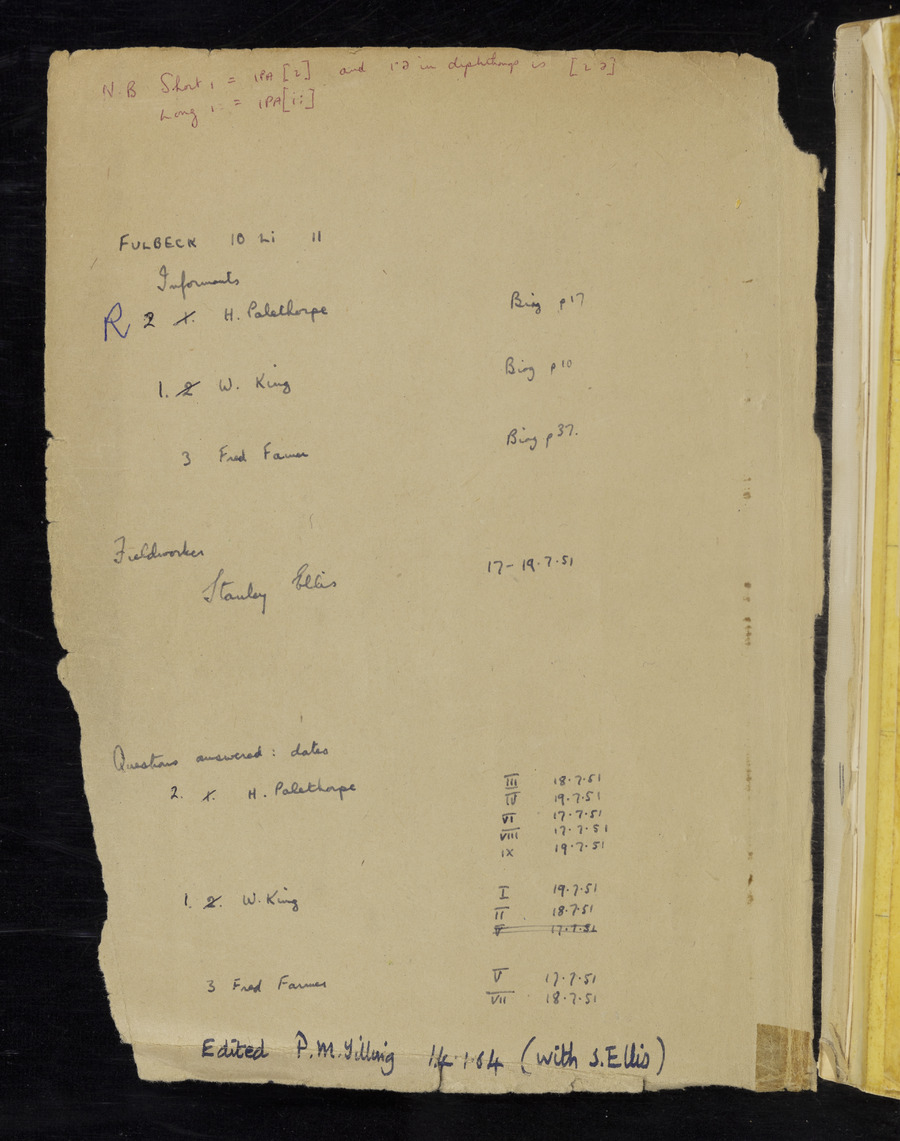 N.B Short i = IPA [ɩ] and iə in diphthongs is [ɩə]
Long i: = IPA [i:]
FULBECK 10 Li 11
Informants
R 2 1. H. Palethorpe Biog p 17
1. 2 W. King Biog p 10
3 Fred Farmer Biog p 37.
Fieldworker
Stanley Ellis 17-19.7.51
Questions answered: dates
2. 1. H. Palethorpe III 18.7.51
IV 19.7.51
VI 17.7.51
VIII 17.7.51
IX 19.7.51
1. 2. W. King I 19.7.51
II 18.7.51
V 17.7.51
3 Fred Farmer V 17.7.51
VII 18.7.51
Edited P.M. Tilling 14.1.64 (with S. Ellis)